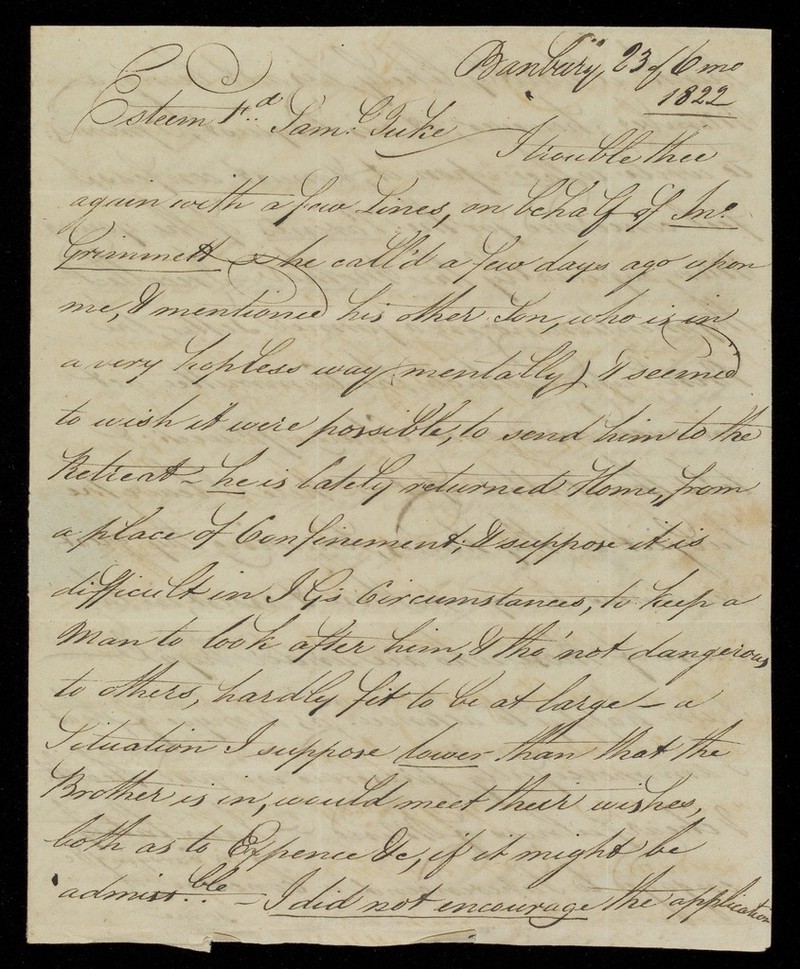 Banbury, 23 of 6 mo
1822
Esteem Fd. Sam: Tuke
I trouble thee
again with a few Lines, on behalf of Jno.
Grimmett - he call'd a few days ago upon
me, & mentioned his other Son, who is in
a very hopless way (mentally) & seemed
to wish it were possible, to send him to the
Retreat - he is lately returned Home, from
a place of Confinement; & suppose it is
difficult in J G's Circumstances, to keep a
Man to look after him, & tho' not dangerous
to others, hardly fit to be at large - a
Situation I suppose lower than that the
Brother is in, would meet their wishes,
both as to Expence &c, if it might be
admiss.ble - I did not encourage the application